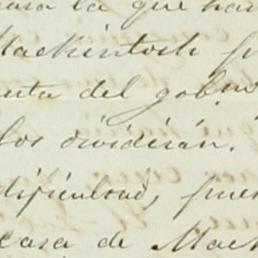 para la que han
Mackintosh
cuenta del gobno
los dividirán.
dificultad, pues
casa de Mack